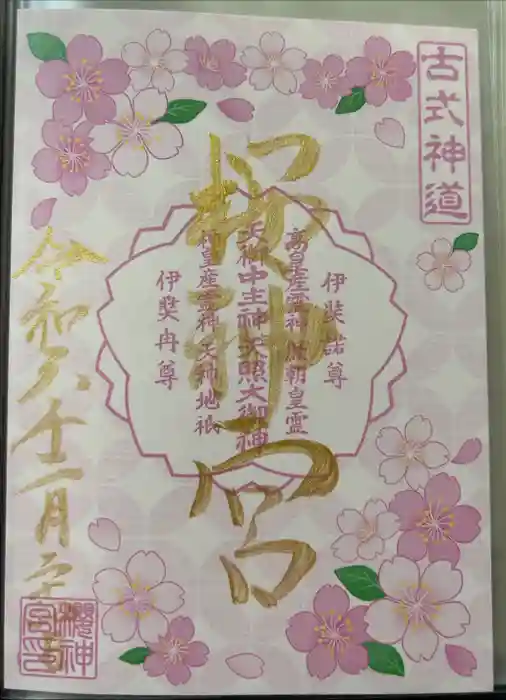 古式神道
櫻神宮
伊奘諾尊
高皇産霊神 歴朝皇霊
天御中主神 天照大御神
神皇産霊神 天神地祇
伊奘冉尊
令和六年十一月
櫻神宮